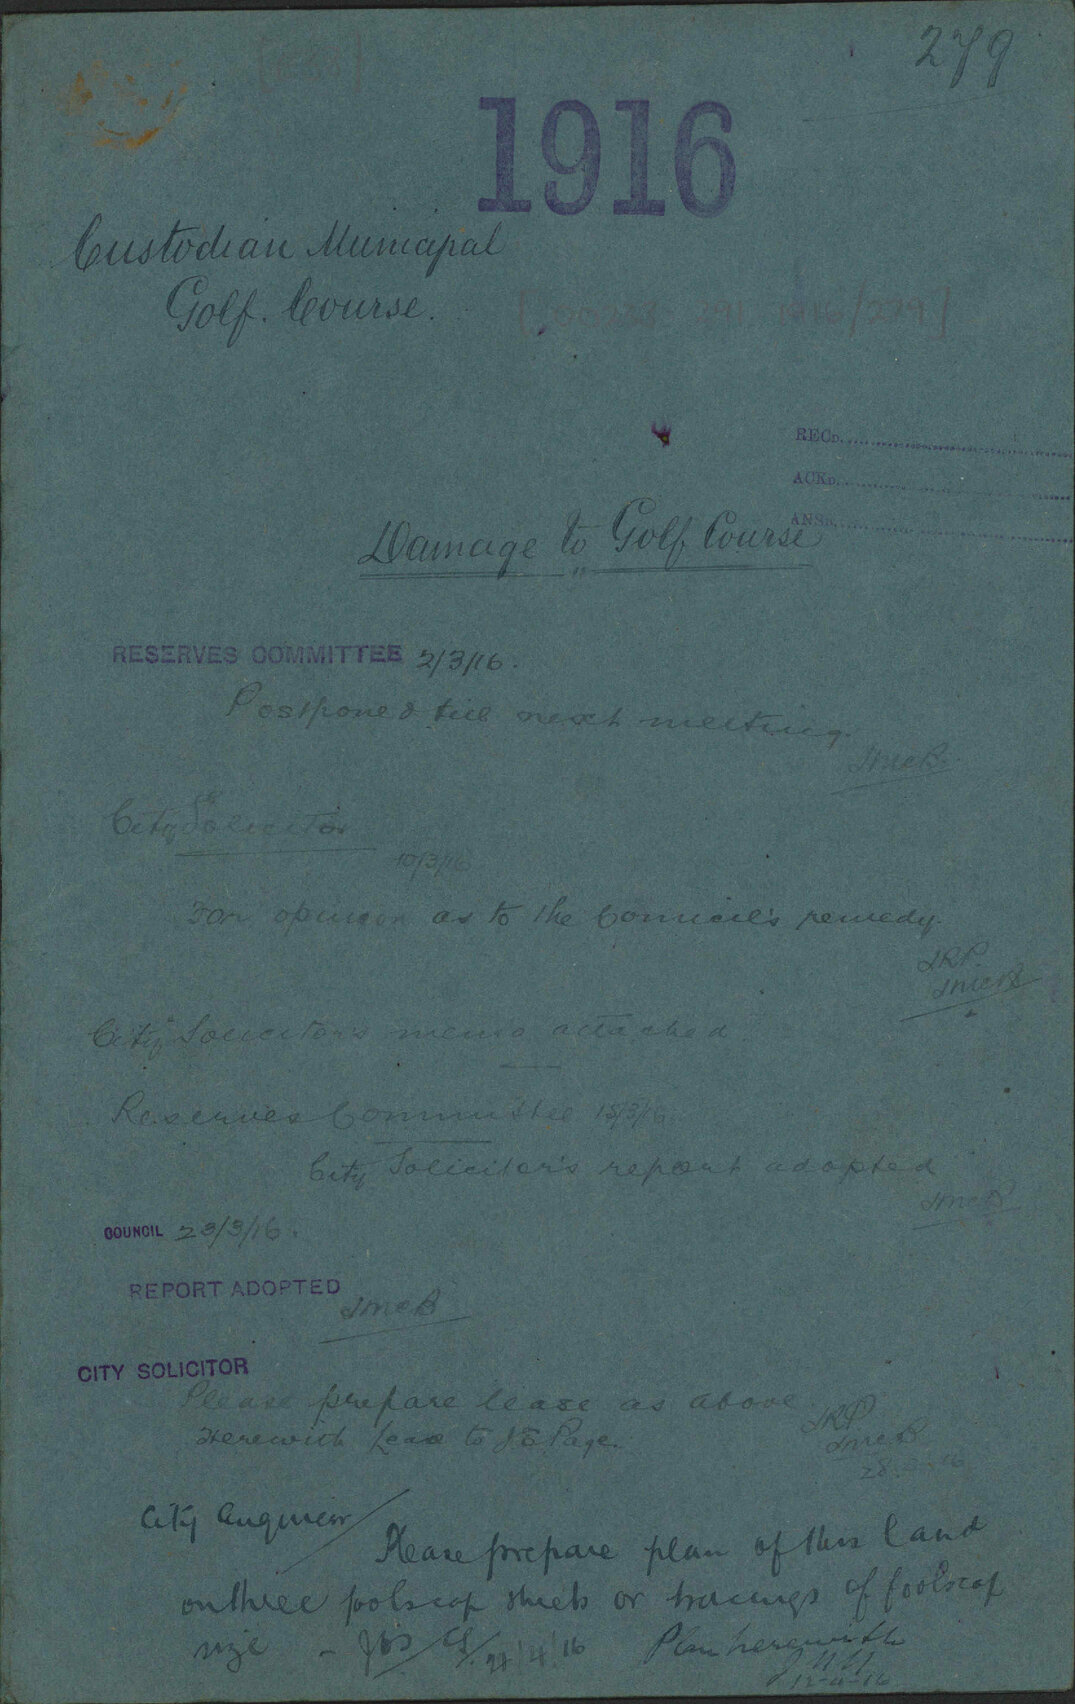 279
1916
Custodian Municipal
Golf. Course.
[00258 : 1916/279]
RECD.
ACKD.
ANSD.
Damage to Golf Course
RESERVES COMMITTEE 2/3/16.
Postponed till next meeting.
JMcB.
City Solicitor
10/3/16
For opinion as to the Council's remedy.
JRP
JMcB
City Solicitor's memo attached
Reserves Committee 15/3/16.
City Solicitor's report adopted
JMcB
COUNCIL 23/3/16.
REPORT ADOPTED
JMcB
CITY SOLICITOR
Please prepare lease as above
Herewith Lease to J E Page.
JRP
JMcB
City Engineer
Please prepare plan of this land
on three foolscap sheets or tracings of foolscap
size - CS / 4/16
Plan herewith
12-4-16